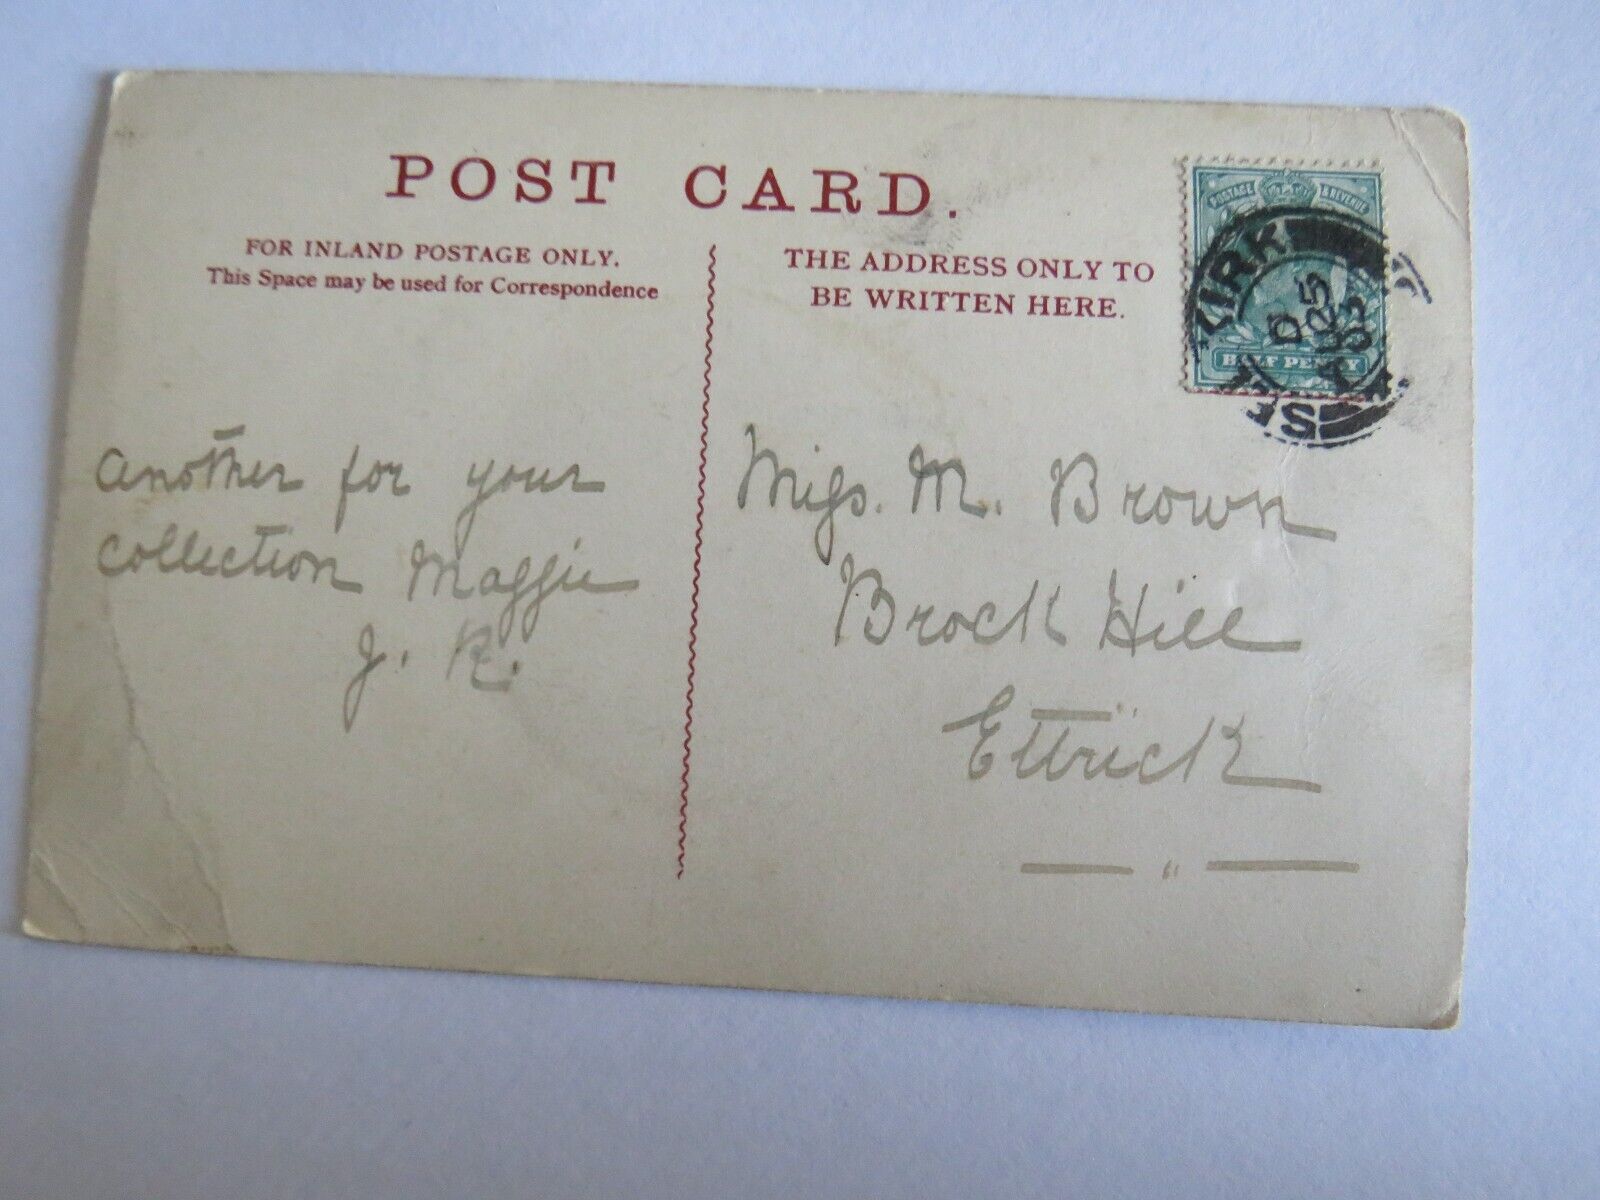 POST CARD.
FOR INLAND POSTAGE ONLY.
This Space may be used for Correspondence
THE ADDRESS ONLY TO
BE WRITTEN HERE.
POSTAGE & REVENUE
HALF PENNY
SELKIRK
D
AU 25
another for your
collection Maggie
J. R.
Miss. M. Brown
Brock Hill
Ettrick